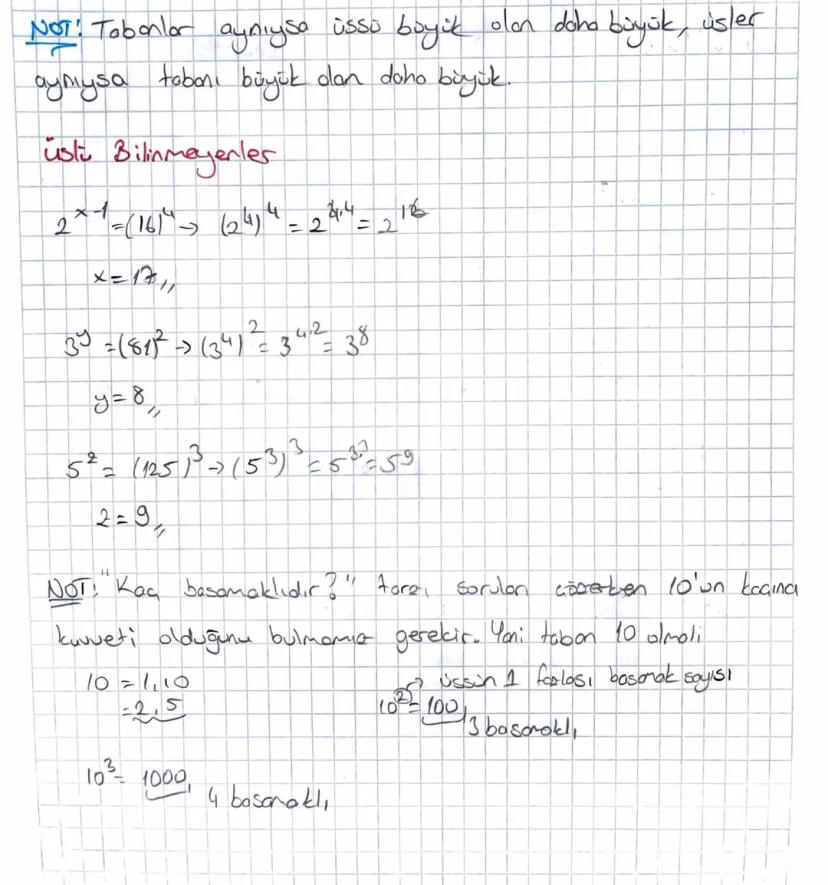 NOT: Tabanlar aynıysa üssü büyük olan daha büyük, üsler
aynıysa tabanı büyük olan daha büyük.
Üslü Bilinmeyenler
2^{x-1} = (16)^4 → (2^4)^4 = 2^{4.4} = 2^{16}
x = 17,,
3^y = (81)^2 → (3^4)^2 = 3^{4.2} = 3^8
y = 8,,
5^z = (125)^3 → (5^3)^3 = 5^{3.3} = 5^9
z = 9,,
NOT: "Kaç basamaklıdır?" tarzı soruları çözerken 10'un kaçıncı
kuvveti olduğunu bulmamız gerekir. Yani taban 10 olmalı
10 = 1.10
= 2.5
→ üssün 1 fazlası basamak sayısı
10^2 = 100
3 basamaklı
10^3 = 1000
4 basamaklı